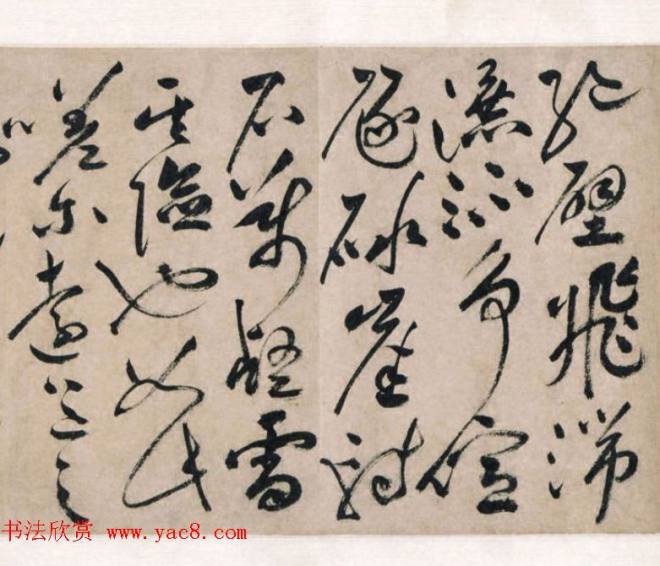 絕壁飛湍
瀑流争喧
豗砯崖轉
石萬壑雷
其險也如此
嗟尔遠道之
书法欣赏 www.yac8.com